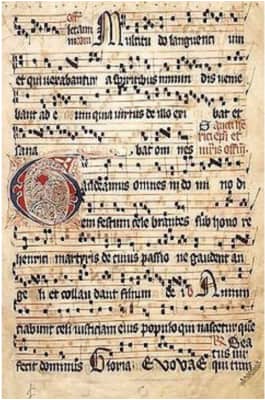 Multitudo languentium
et qui vexabantur a spiritibus inmundis venie
bant ad e um quia virtus de illo exi bat et
sana bat om nes
Gaudeamus omnes in do mi no di
em festum cele brantes sub hono re
henrici martyris de cuius passio ne gaudent an
ge li et collau dant filium de i Annun
ciabunt celi iusticiam eius populo qui nascetur que
fecit dominus Gloria Evovae qui tim